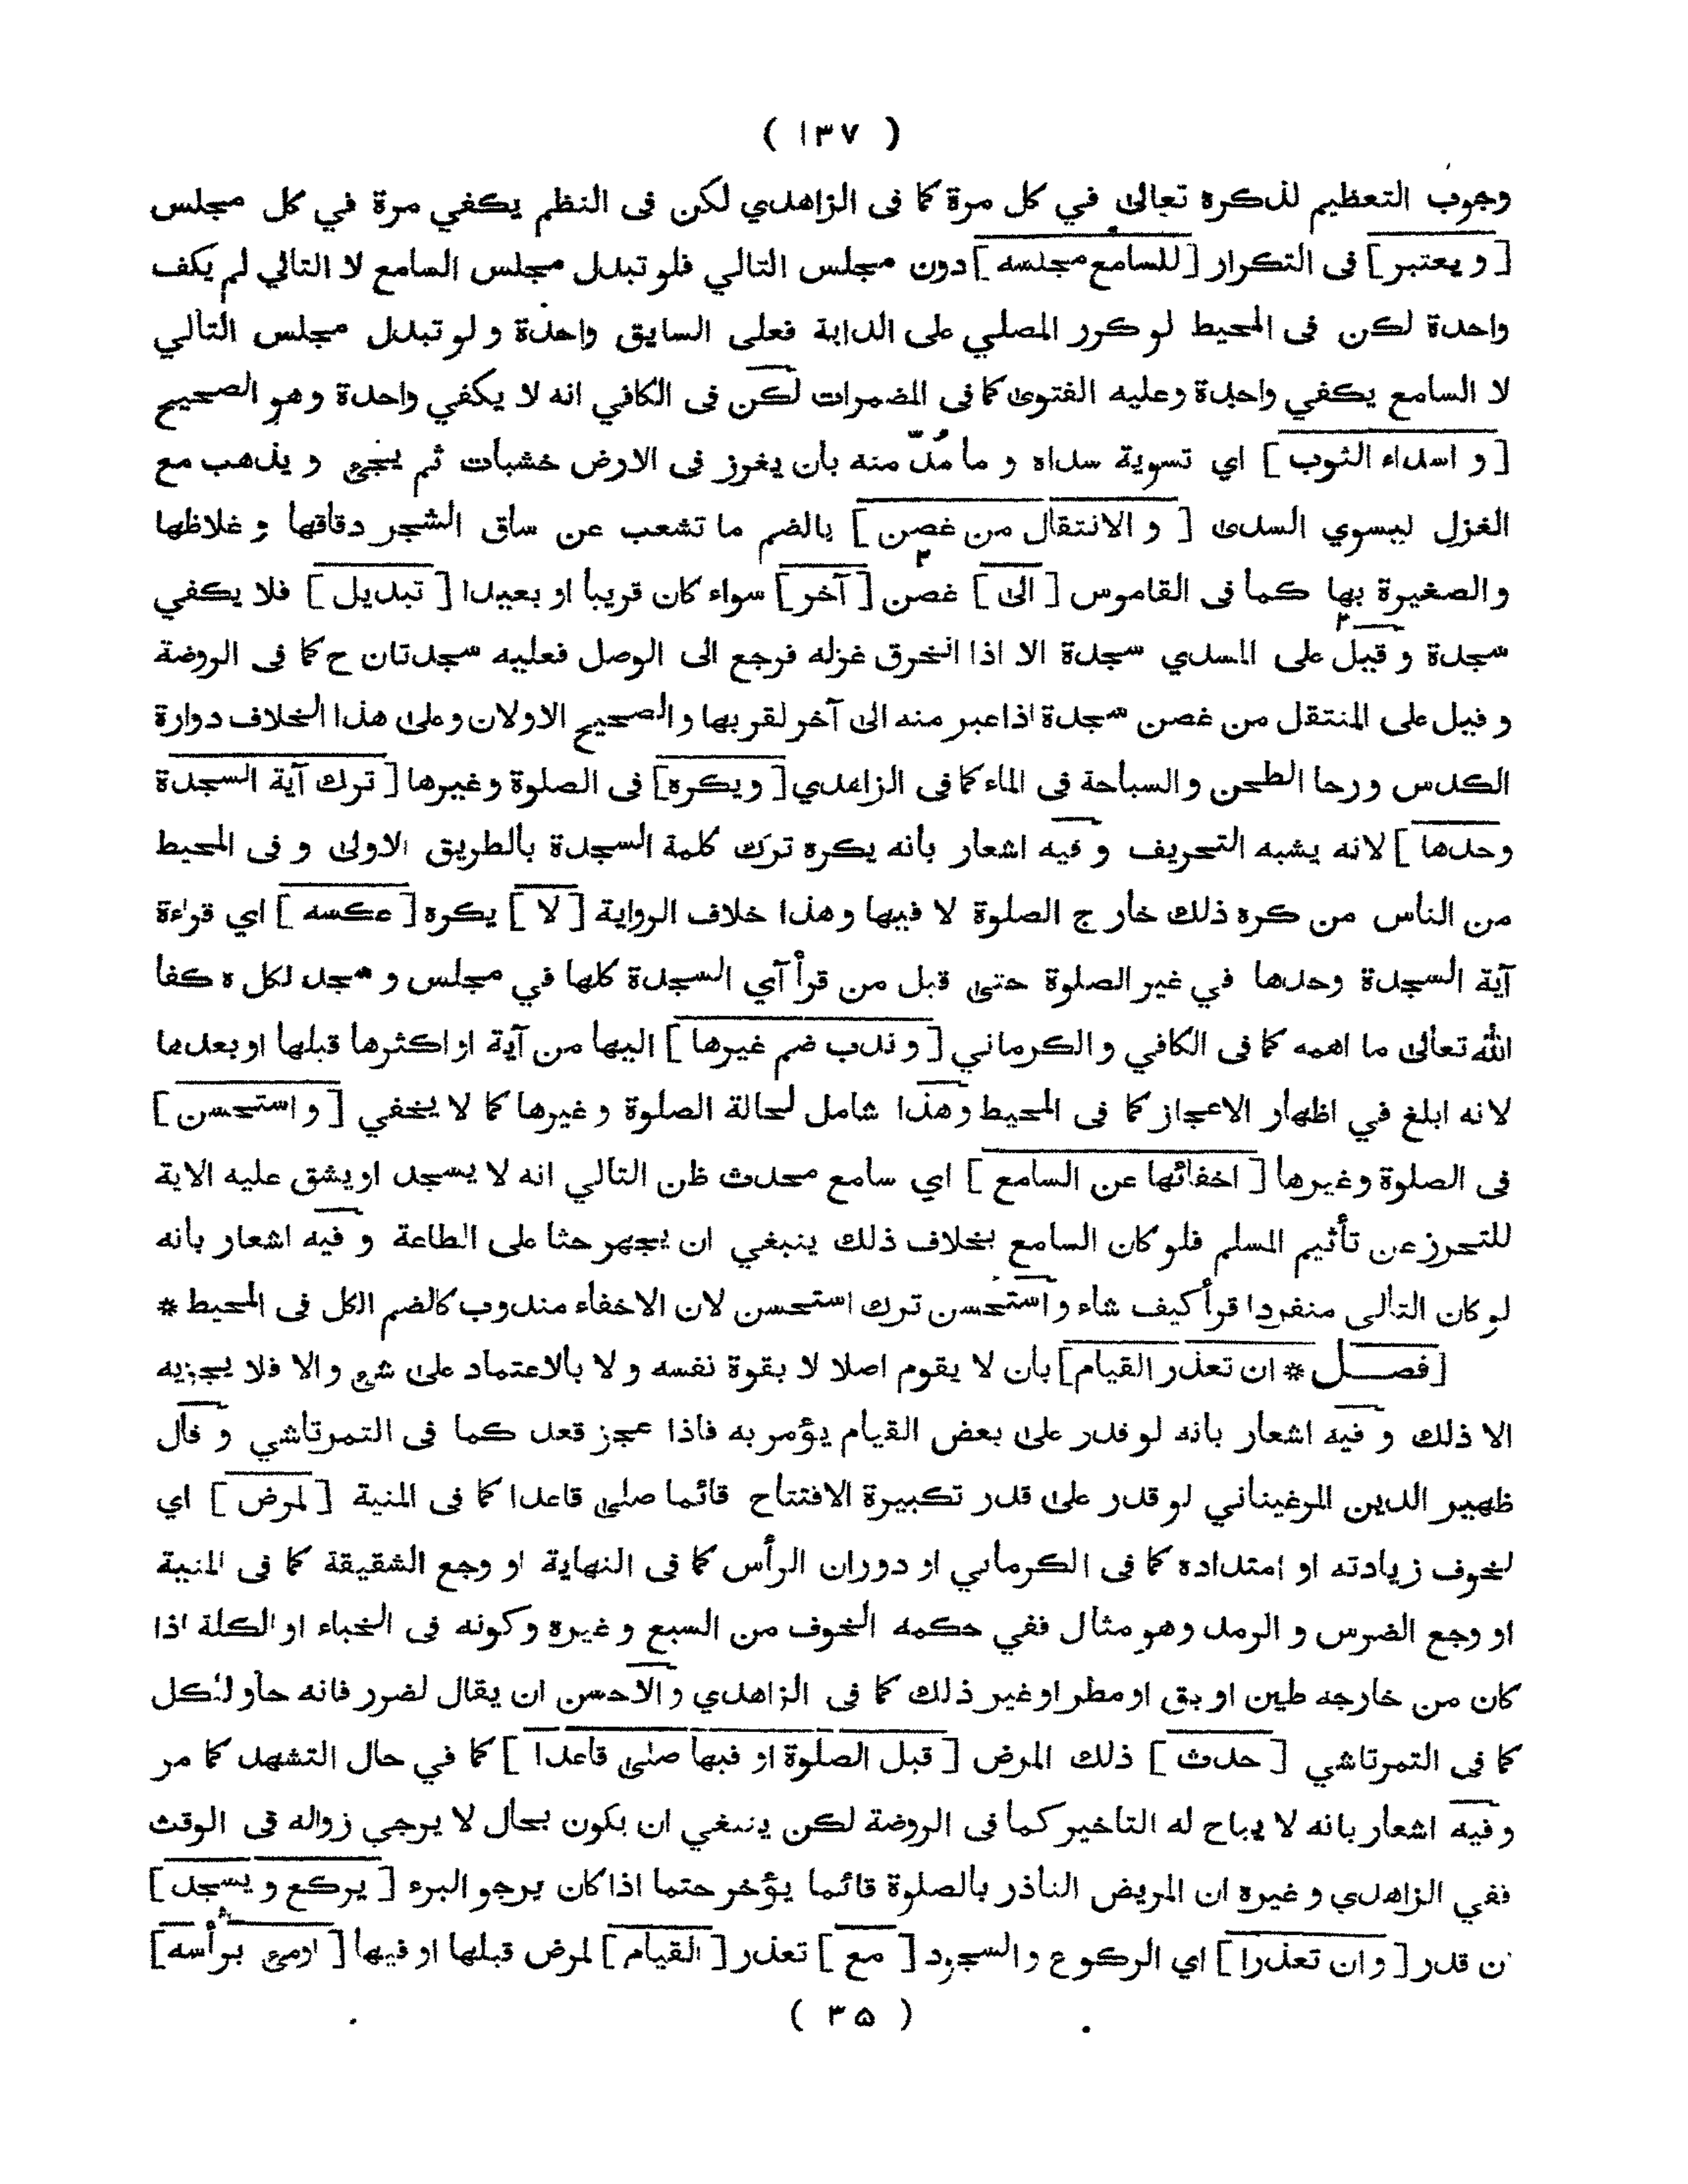 ( ١٣٧ )
وجوب التعظيم لذكره تعالى في كل مرة كما فى الزاهدي لكن فى النظم يكفي مرة في كل مجلس
[ و يعتبر ] فى التكرار [ للسامع مجلسه ] دون مجلس التالي فلو تبدل مجلس السامع لا التالي لم يكف
واحدة لكن فى المحيط لو كرر المصلي على الدابة فعلى السايق واحدة و لو تبدل مجلس التالي
لا السامع يكفي واحدة وعليه الفتوى كما فى المضمرات لكن فى الكافي انه لا يكفي واحدة وهو الصحيح
[ و اسداء الثوب ] اي تسوية سداه و ما مُدّ منه بان يغرز فى الارض خشبات ثم يجئ و يذهب مع
الغزل ليسوي السدى [ و الانتقال من غصن ] بالضم ما تشعب عن ساق الشجر دقاقها و غلاظها
والصغيرة بها كما فى القاموس [ الى ] غصن [ آخر ] سواء كان قريبا او بعيدا [ تبديل ] فلا يكفي
سجدة و قيل على المسدي سجدة الا اذا انخرق غزله فرجع الى الوصل فعليه سجدتان ح كما فى الروضة
و قيل على المنتقل من غصن سجدة اذا عبر منه الى آخر لقربها والصحيح الاولان وعلى هذا الخلاف دوارة
الكدس ورحا الطحن والسباحة فى الماء كما فى الزاهدي [ ويكره ] فى الصلوة وغيرها [ ترك آية السجدة
وحدها ] لانه يشبه التحريف و فيه اشعار بانه يكره ترك كلمة السجدة بالطريق الاولى و فى المحيط
من الناس من كره ذلك خارج الصلوة لا فيها وهذا خلاف الرواية [ لا ] يكره [ عكسه ] اي قراءة
آية السجدة وحدها في غير الصلوة حتى قيل من قرأ آي السجدة كلها في مجلس و سجد لكل ه كفا
الله تعالى ما اهمه كما فى الكافي والكرماني [ و ندب ضم غيرها ] اليها من آية او اكثرها قبلها او بعدها
لانه ابلغ في اظهار الاعجاز كما فى المحيط وهذا شامل لحالة الصلوة و غيرها كما لا يخفي [ و استحسن ]
فى الصلوة وغيرها [ اخفائها عن السامع ] اي سامع محدث ظن التالي انه لا يسجد او يشق عليه الاية
للتحرز عن تأثيم المسلم فلو كان السامع بخلاف ذلك ينبغي ان يجهر حثا على الطاعة و فيه اشعار بانه
لو كان التالى منفردا قرأ كيف شاء و استحسن ترك استحسن لان الاخفاء مندوب كالضم الكل فى المحيط *
[ فصــل * ان تعذر القيام ] بان لا يقوم اصلا لا بقوة نفسه و لا بالاعتماد على شئ والا فلا يجزيه
الا ذلك و فيه اشعار بانه لو قدر على بعض القيام يؤمر به فاذا عجز قعد كما فى التمرتاشي و قال
ظهير الدين المرغيناني لو قدر على قدر تكبيرة الافتتاح قائما صلى قاعدا كما فى المنية [ لمرض ] اي
لخوف زيادته او امتداده كما فى الكرماني او دوران الرأس كما فى النهاية او وجع الشقيقة كما فى المنية
او وجع الضرس و الرمد وهو مثال ففي حكمه الخوف من السبع و غيره وكونه فى الخباء او الكلة اذا
كان من خارجه طين او بق او مطر او غير ذلك كما فى الزاهدي والاحسن ان يقال لضرر فانه حاو للكل
كما فى التمرتاشي [ حدث ] ذلك المرض [ قبل الصلوة او فيها صلى قاعدا ] كما في حال التشهد كما مر
و فيه اشعار بانه لا يباح له التاخير كما فى الروضة لكن ينبغي ان يكون بحال لا يرجي زواله فى الوقت
ففي الزاهدي و غيره ان المريض الناذر بالصلوة قائما يؤخر حتما اذا كان يرجو البرء [ يركع و يسجد ]
ن قدر [ و ان تعذرا ] اي الركوع والسجود [ مع ] تعذر [ القيام ] لمرض قبلها او فيها [ اومئ برأسه ]
( ٣٥ )